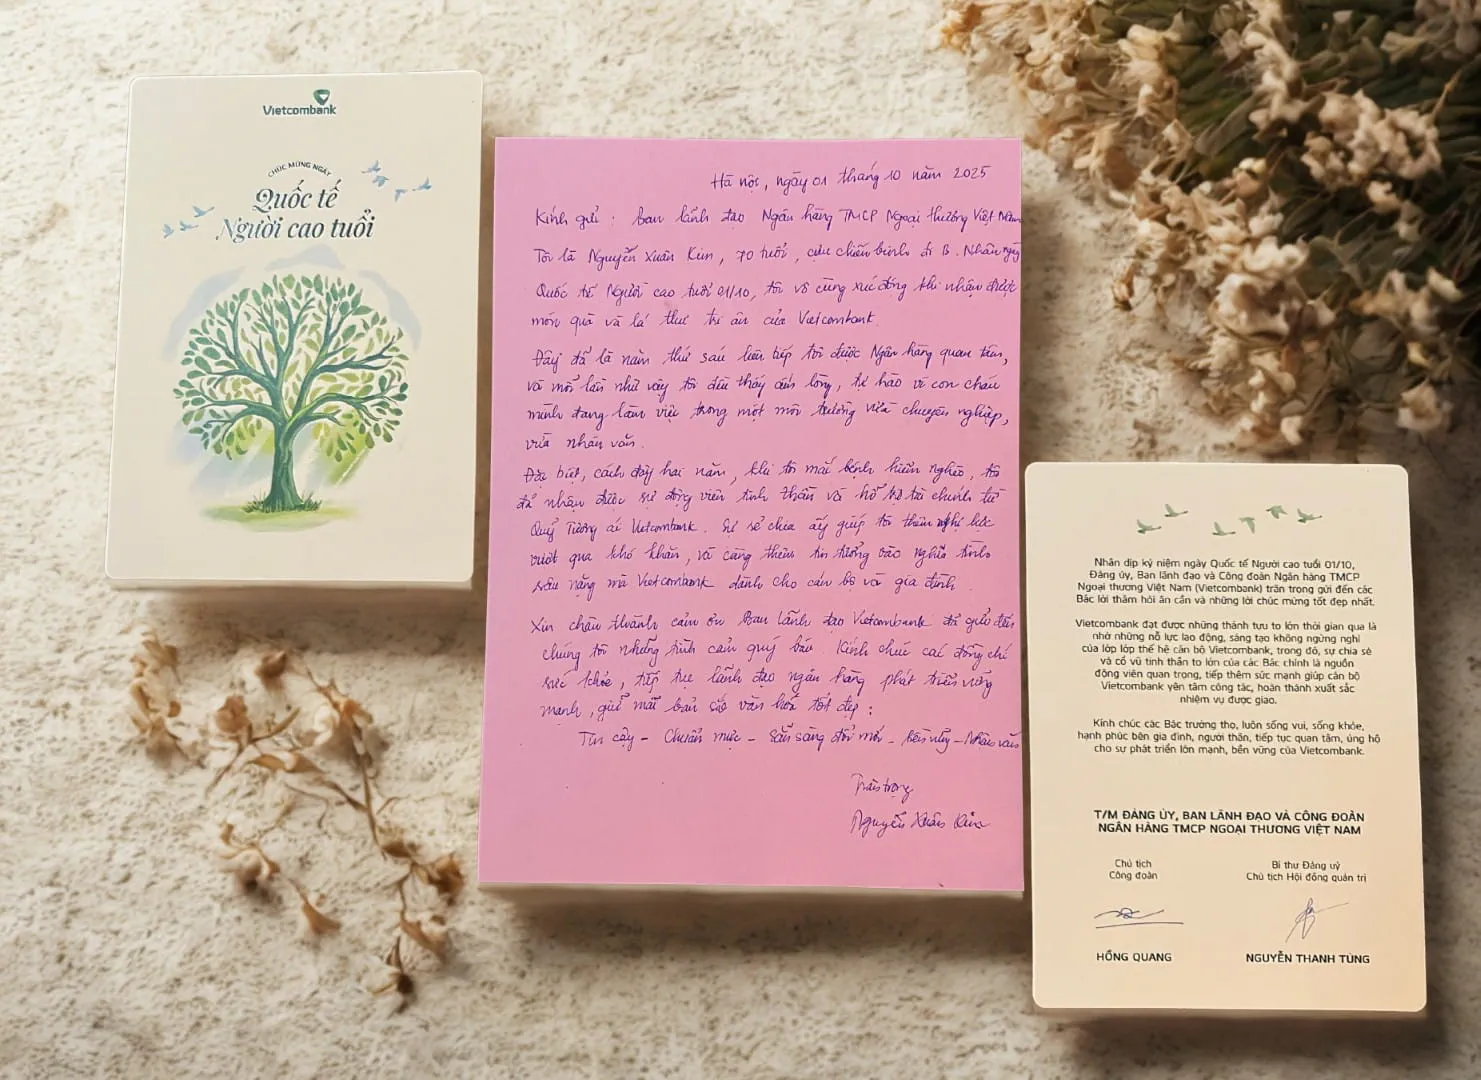 Vietcombank
CHÚC MỪNG NGÀY
Quốc tế
Người cao tuổi
Hà nội, ngày 01 tháng 10 năm 2025
Kính gửi : Ban lãnh đạo Ngân hàng TMCP Ngoại thương Việt Nam
Tôi là Nguyễn Xuân Kim, 70 tuổi, cựu chiến binh đi B. Nhân ngày
Quốc tế Người cao tuổi 01/10, tôi vô cùng xúc động khi nhận được
món quà và lá thư tri ân của Vietcombank.
Đây đã là năm thứ sáu liên tiếp tôi được Ngân hàng quan tâm,
và mỗi lần như vậy tôi đều thấy ấm lòng, tự hào vì con cháu
mình đang làm việc trong một môi trường vừa chuyên nghiệp,
vừa nhân văn.
Đặc biệt, cách đây hai năm, khi tôi mắc bệnh hiểm nghèo, tôi
đã nhận được sự động viên tinh thần và hỗ trợ tài chính từ
Quỹ Tương ái Vietcombank. Sự sẻ chia ấy giúp tôi thêm nghị lực
vượt qua khó khăn, và càng thêm tin tưởng vào nghĩa tình
sâu nặng mà Vietcombank dành cho cán bộ và gia đình.
Xin chân thành cảm ơn Ban lãnh đạo Vietcombank đã gửi đến
chúng tôi những tình cảm quý báu. Kính chúc các đồng chí
sức khỏe, tiếp tục lãnh đạo ngân hàng phát triển vững
mạnh, giữ mãi bản sắc văn hoá tốt đẹp :
Tin cậy - Chuẩn mực - Sẵn sàng đổi mới - Bền vững - Nhân văn
Trân trọng
Nguyễn Xuân Kim
Nhân dịp kỷ niệm ngày Quốc tế Người cao tuổi 01/10,
Đảng ủy, Ban lãnh đạo và Công đoàn Ngân hàng TMCP
Ngoại thương Việt Nam (Vietcombank) trân trọng gửi đến các
Bác lời thăm hỏi ân cần và những lời chúc mừng tốt đẹp nhất.
Vietcombank đạt được những thành tựu to lớn thời gian qua là
nhờ những nỗ lực lao động, sáng tạo không ngừng nghỉ
của lớp lớp thế hệ cán bộ Vietcombank, trong đó, sự chia sẻ
và cổ vũ tinh thần to lớn của các Bác chính là nguồn
động viên quan trọng, tiếp thêm sức mạnh giúp cán bộ
Vietcombank yên tâm công tác, hoàn thành xuất sắc
nhiệm vụ được giao.
Kính chúc các Bác trường thọ, luôn sống vui, sống khỏe,
hạnh phúc bên gia đình, người thân, tiếp tục quan tâm, ủng hộ
cho sự phát triển lớn mạnh, bền vững của Vietcombank.
T/M ĐẢNG ỦY, BAN LÃNH ĐẠO VÀ CÔNG ĐOÀN
NGÂN HÀNG TMCP NGOẠI THƯƠNG VIỆT NAM
Chủ tịch
Công đoàn
HỒNG QUANG
Bí thư Đảng uỷ
Chủ tịch Hội đồng quản trị
NGUYỄN THANH TÙNG